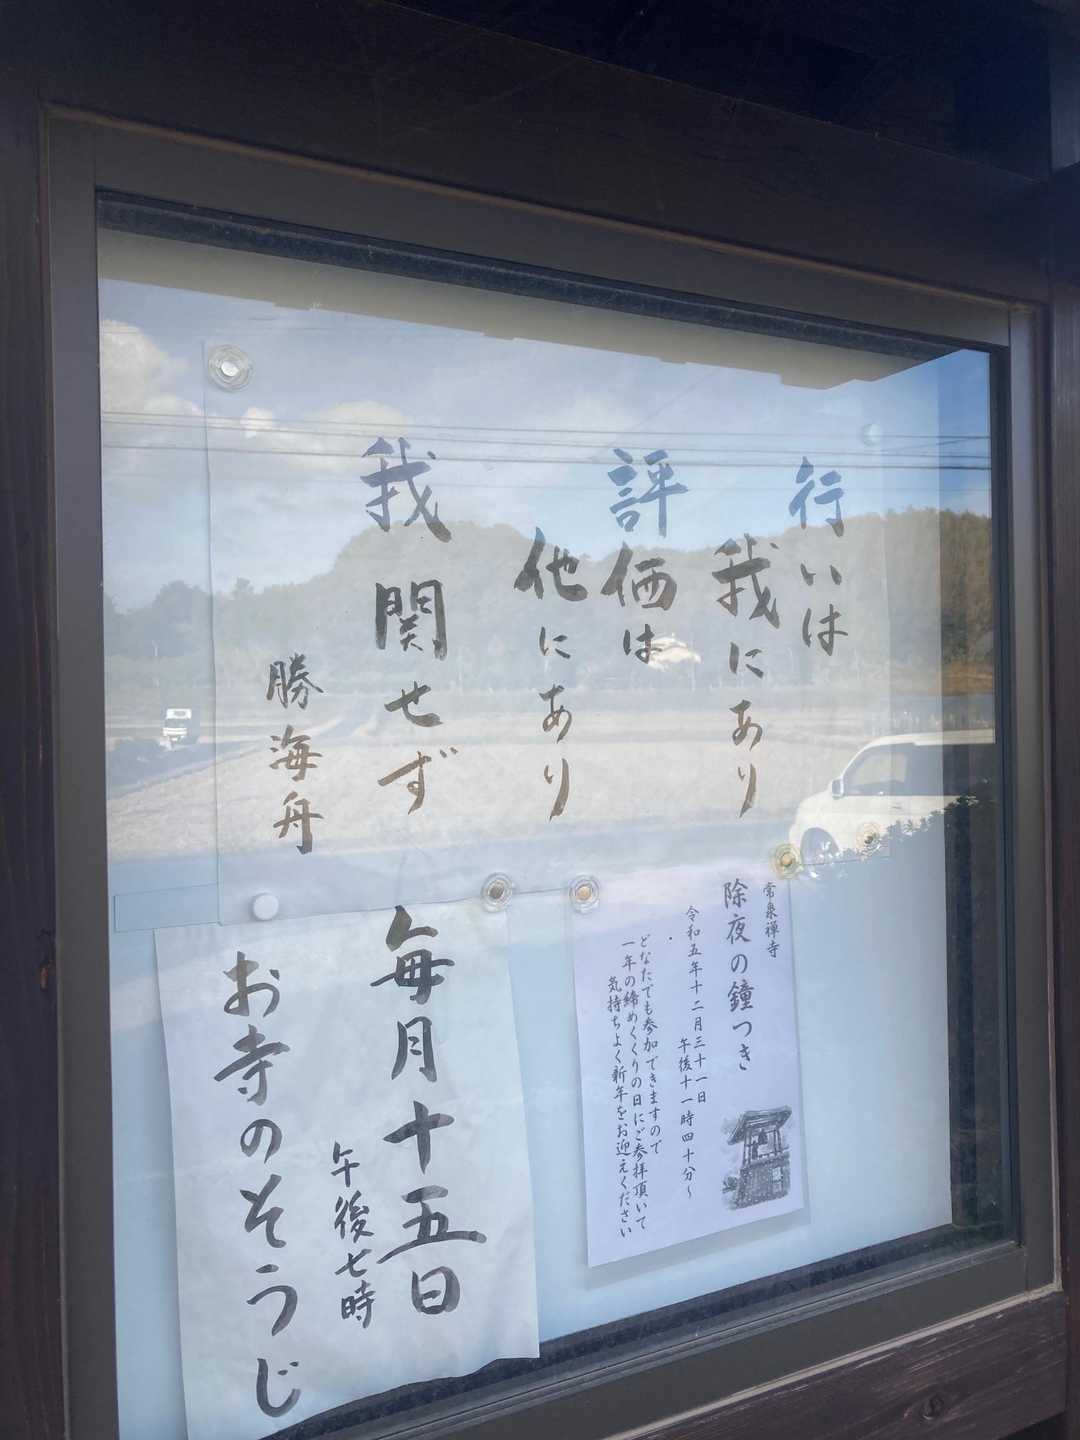 行いは
我にあり
評価は
他にあり
我関せず
勝海舟
常泉禅寺
除夜の鐘つき
令和五年十二月三十一日
午後十一時四十分~
どなたでも参加できますので
一年の締めくくりの日にご参拝頂いて
気持ちよく新年をお迎えください
毎月十五日
午後七時
お寺のそうじ